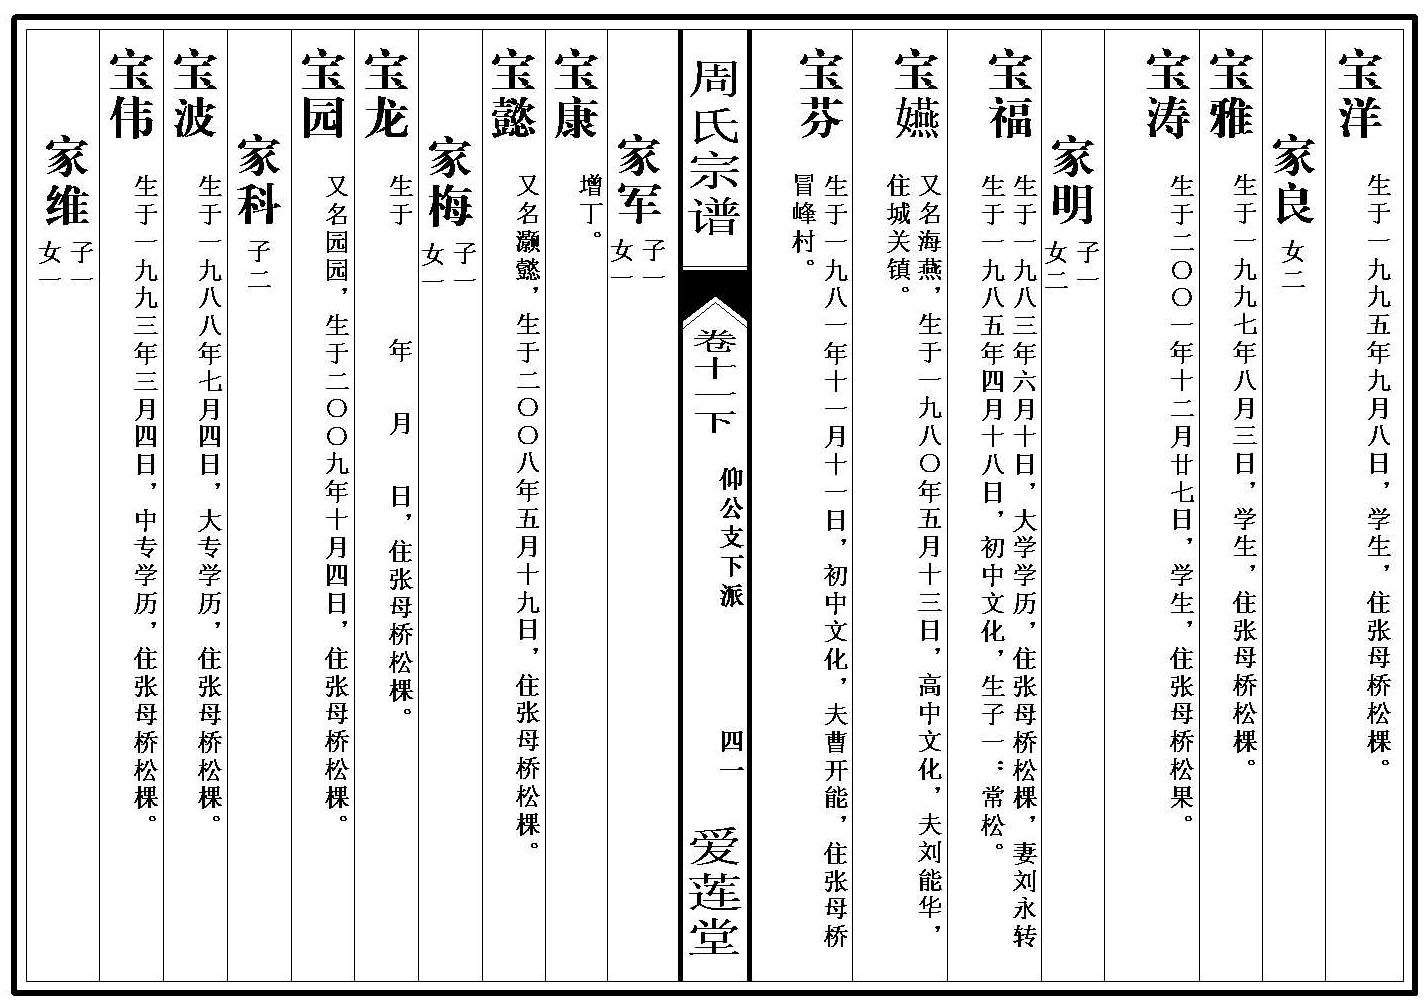 宝洋
生于一九九五年九月八日，学生，住张母桥松棵。
家良
女二
宝雅
生于一九九七年八月三日，学生，住张母桥松棵。
宝涛
生于二〇〇一年十二月廿七日，学生，住张母桥松果。
家明
子一
女二
宝福
生于一九八三年六月十日，大学学历，住张母桥松棵，妻刘永转
生于一九八五年四月十八日，初中文化，生子一：常松。
宝嬿
又名海燕，生于一九八〇年五月十三日，高中文化，夫刘能华，
住城关镇。
宝芬
生于一九八一年十一月十一日，初中文化，夫曹开能，住张母桥
冒峰村。
周氏宗谱
卷十一下
仰公支下派
四一
爱莲堂
家军
子一
女一
宝康
增丁。
宝懿
又名灏懿，生于二〇〇八年五月十九日，住张母桥松棵。
家梅
子一
女一
宝龙
生于 年 月 日，住张母桥松棵。
宝园
又名园园，生于二〇〇九年十月四日，住张母桥松棵。
家科
子二
宝波
生于一九八八年七月四日，大专学历，住张母桥松棵。
宝伟
生于一九九三年三月四日，中专学历，住张母桥松棵。
家维
子一
女一